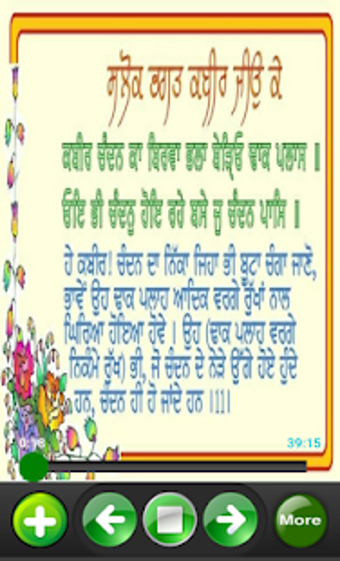 ਸਲੋਕ ਭਗਤ ਕਬੀਰ ਜੀਉ ਕੇ
ਕਬੀਰ ਚੰਦਨ ਕਾ ਬਿਰਵਾ ਭਲਾ ਬੇੜ੍ਹਿਓ ਢਾਕ ਪਲਾਸ ॥
ਓਇ ਭੀ ਚੰਦਨੁ ਹੋਇ ਰਹੇ ਬਸੇ ਜੁ ਚੰਦਨ ਪਾਸਿ ॥
ਹੇ ਕਬੀਰ! ਚੰਦਨ ਦਾ ਨਿੱਕਾ ਜਿਹਾ ਭੀ ਬੂਟਾ ਚੰਗਾ ਜਾਣੋ,
ਭਾਵੇਂ ਉਹ ਢਾਕ ਪਲਾਹ ਆਦਿਕ ਵਰਗੇ ਰੁੱਖਾਂ ਨਾਲ
ਘਿਰਿਆ ਹੋਇਆ ਹੋਵੇ । ਉਹ (ਢਾਕ ਪਲਾਹ ਵਰਗੇ
ਨਿਕੰਮੇ ਰੁੱਖ) ਭੀ, ਜੋ ਚੰਦਨ ਦੇ ਨੇੜੇ ਉੱਗੇ ਹੋਏ ਹੁੰਦੇ
ਹਨ, ਚੰਦਨ ਹੀ ਹੋ ਜਾਂਦੇ ਹਨ ।11।
39:15
More